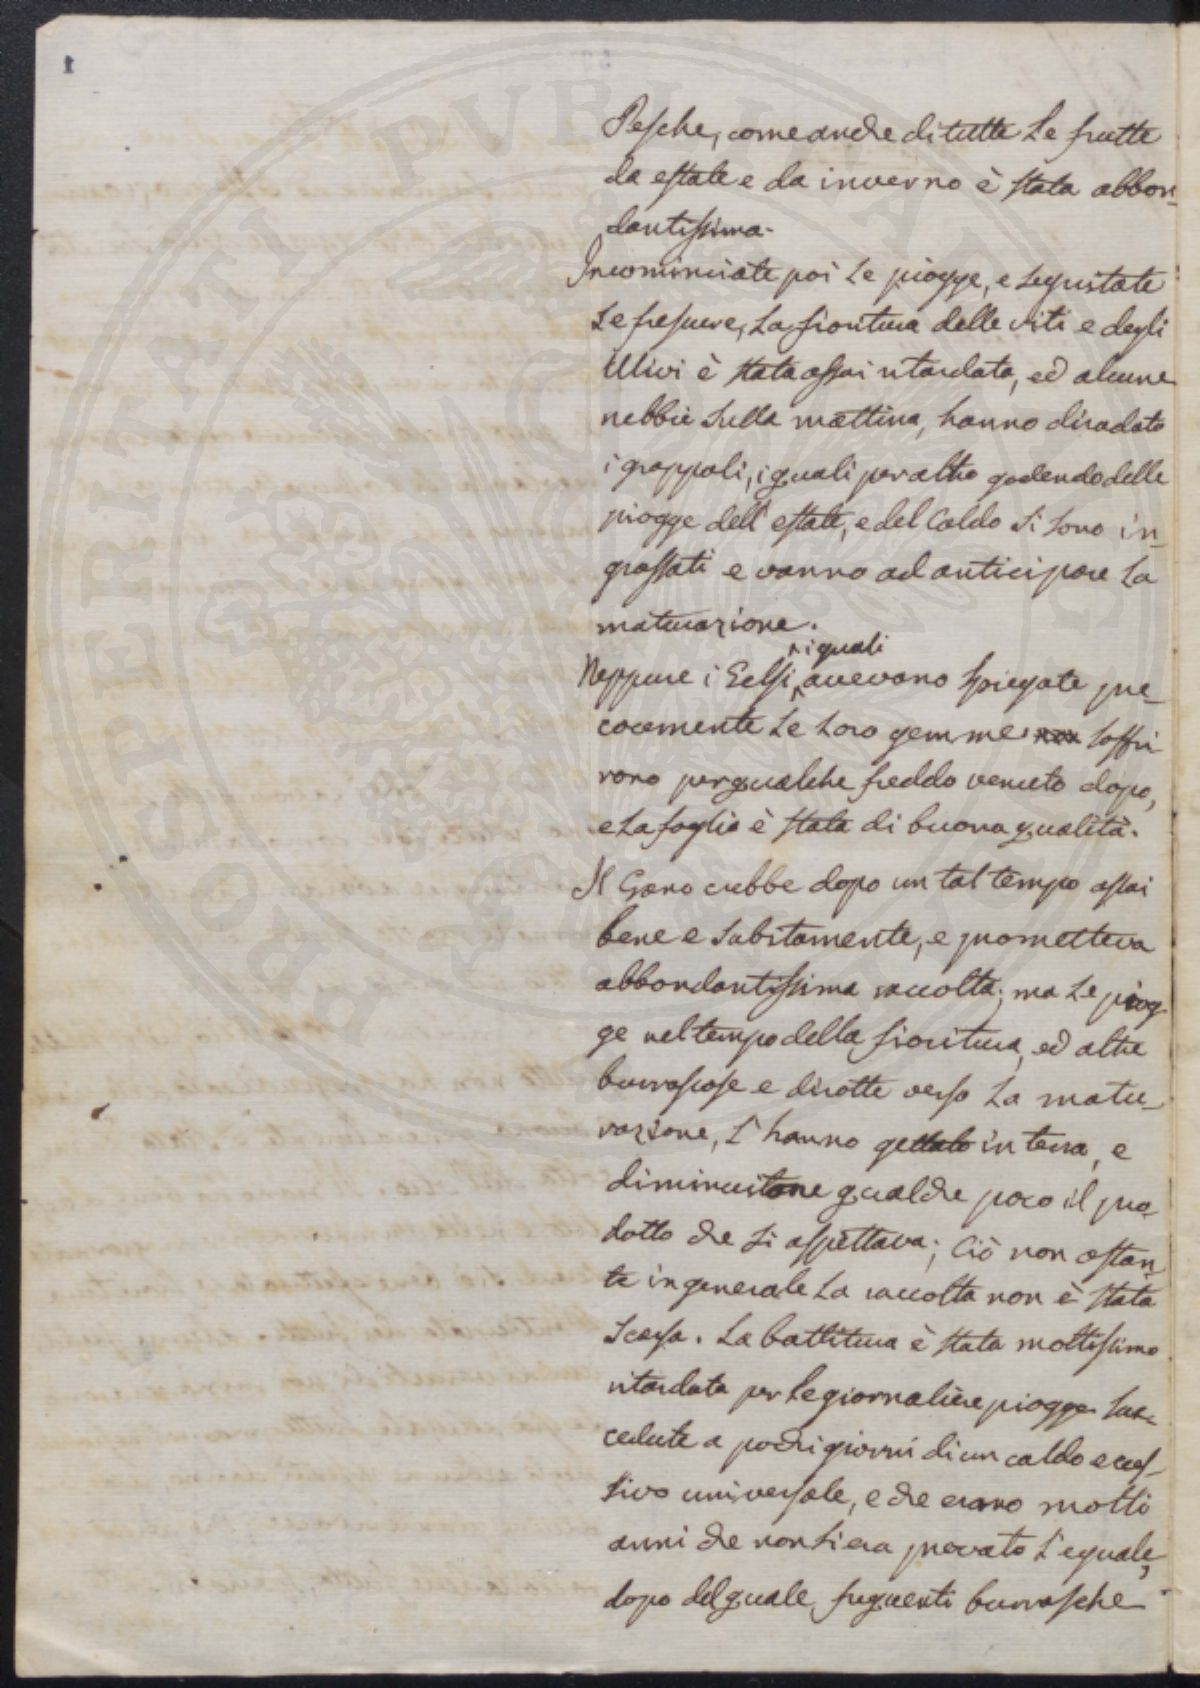 1
Pesche, come anche di tutte le frutte
da estate e da inverno è stata abbon-
dantissima.
Incominciate poi le piogge, e seguitate
le frescure, la fioritura delle viti e degli
Ulivi è stata assai ritardata, ed alcune
nebbie sulla mattina, hanno diradato
i grappoli, i quali per altro godendo delle
piogge dell'estate, e del caldo si sono in-
grossati e vanno ad anticipare la
maturazione.
Neppure i Gelsi i quali avevano spiegate pre-
cocemente le loro gemme non soffri
rono per qualche freddo venuto dopo,
e la foglia è stata di buona qualità.
Il Grano crebbe dopo un tal tempo assai
bene e subitamente, e prometteva
abbondantissima raccolta; ma le piog-
ge nel tempo della fioritura, ed altre
burrascose e dirotte verso la matu-
razione, l'hanno gettato in terra, e
diminuitone qualche poco il pro-
dotto che si aspettava; Ciò non ostan-
te in generale la raccolta non è stata
scarsa. La battitura è stata moltissimo
ritardata per le giornaliere piogge suc-
cedute a pochi giorni di un caldo ecces-
sivo universale, e che erano molti
anni che non si era provato l'eguale,
dopo del quale frequenti burrasche
PROSPERITATI PVBLICAE